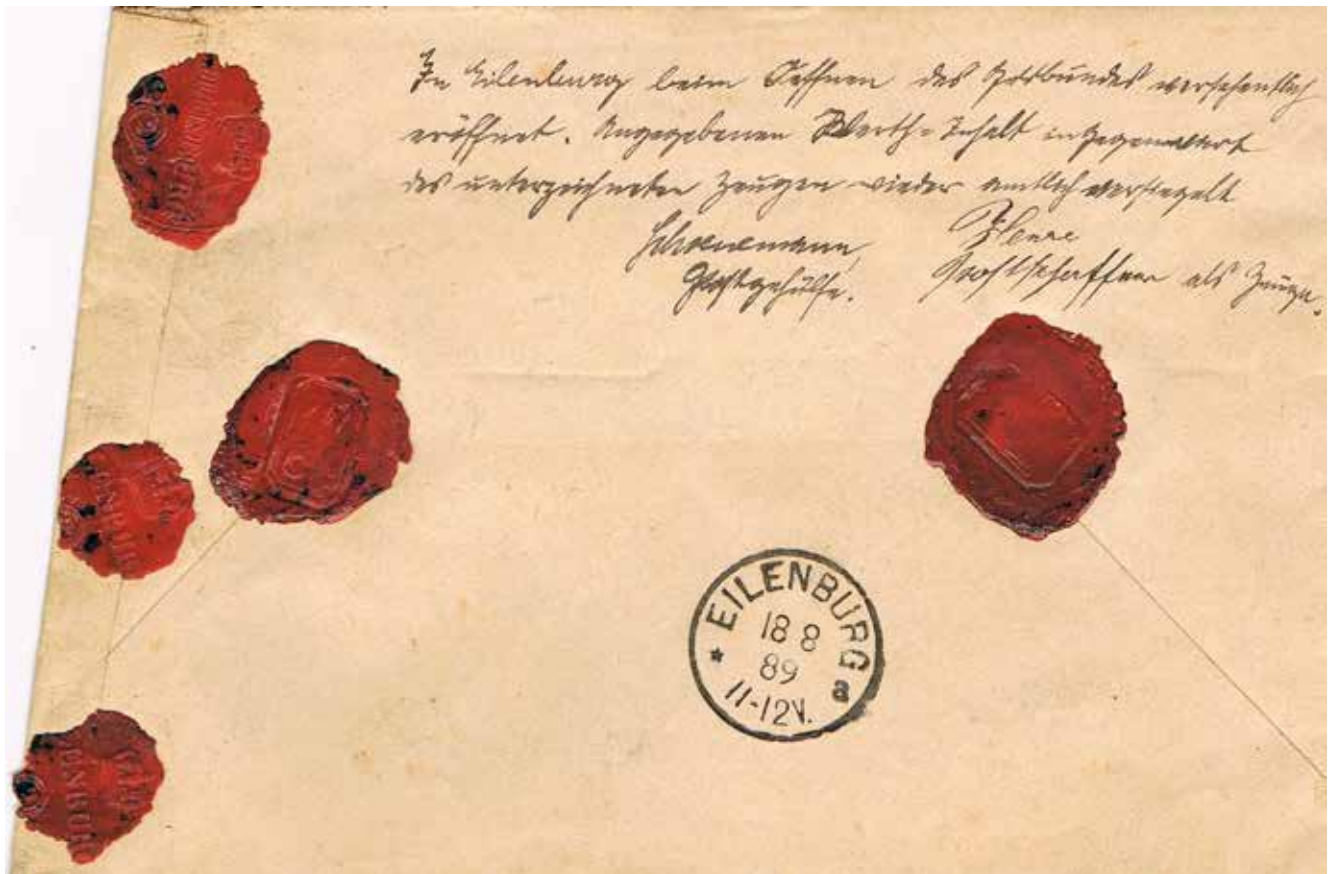 In Eilenburg beim Oeffnen des Postbundes versehentlich
eröffnet. Angegebenen Werth-Inhalt in Gegenwart
des unterzeichneten Zeugen wieder amtlich versiegelt
Schoenemann,
Postgehülfe.
Postschaffner als Zeuge.
EILENBURG
18 8
89
11-12V.
* a